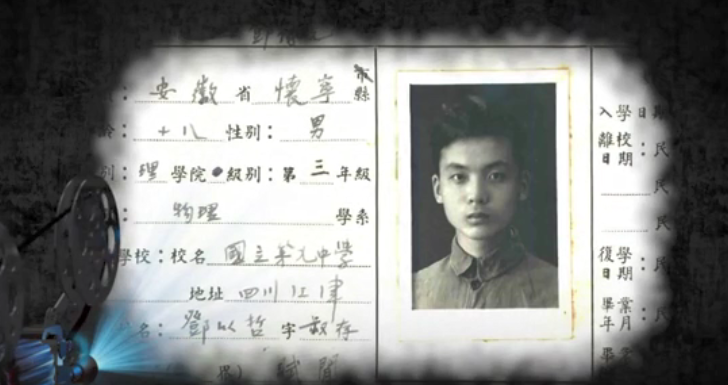 安徽省懷寧縣
齡：十八 性別：男
別：理學院 級別：第三年級
：物理 學系
學校：校名 國立第九中學
地址 四川江津
名：鄧以哲 字 叔存
入學日期：民
離校日期：民
復學日期：民
畢業年月：民
畢業